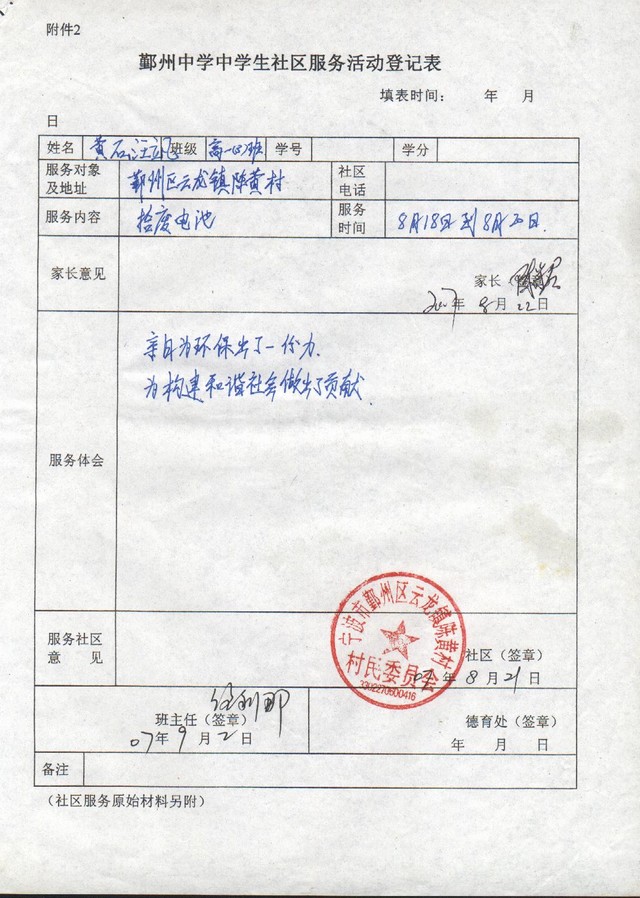 附件2
鄞州中学中学生社区服务活动登记表
填表时间： 年 月
日
姓名 班级 高一 班 学号 学分
服务对象及地址 鄞州区云龙镇陈黄村 社区电话
服务内容 拾废电池 服务时间 8月18日到8月20日.
家长意见
家长
2007年8月22日
服务体会
亲自为环保出了一份力.
为构建和谐社会做出了贡献
宁波市鄞州区云龙镇陈黄村
村民委员会
服务社区
意 见
社区（签章）
07年8月21日
班主任（签章） 德育处（签章）
07年9月2日 年 月 日
备注
（社区服务原始材料另附）